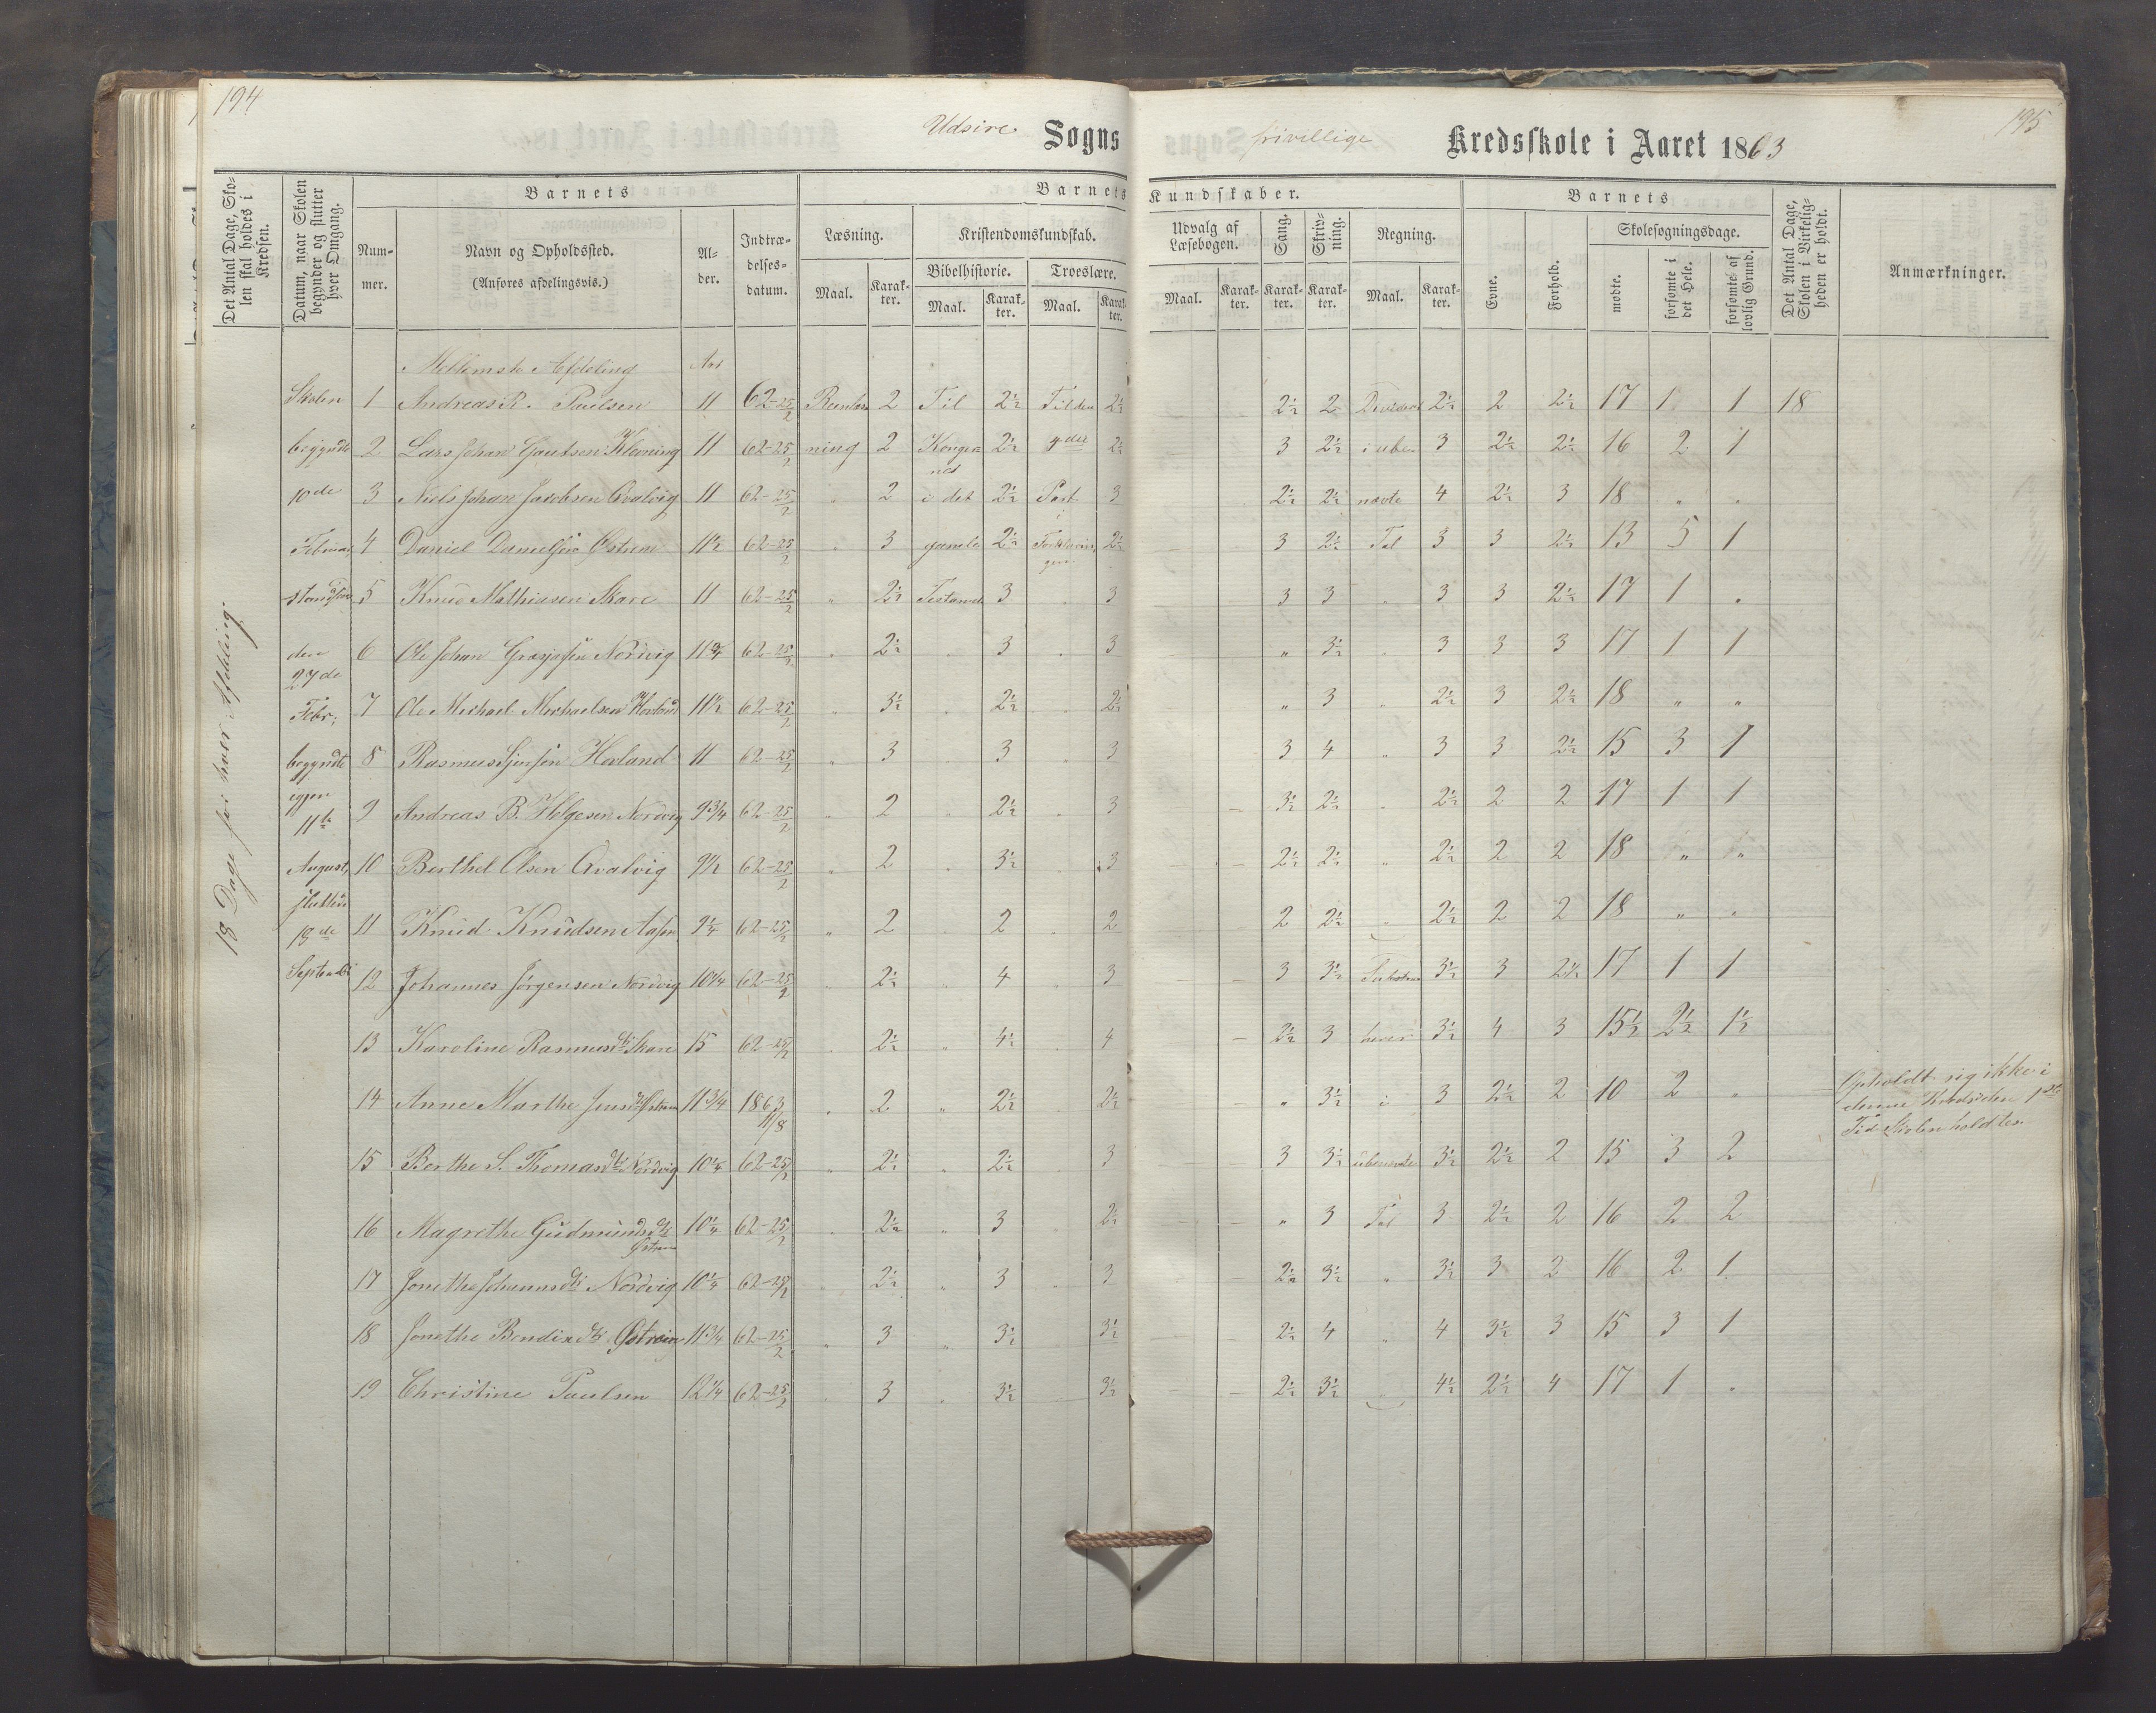 194
Udsire Sogns
frivellige Kredsskole i Aaret 1863
195
Det Antal Dage, Skolen skal holdes i Kredsen.
Datum, naar Skolen begynder og slutter hver Omgang.
Barnets
Nummer.
Navn og Opholdssted.
(Anføres afdelingsvis.)
Alder.
Indtrædelses-datum.
Barnets
Læsning.
Maal.
Karakter.
Kristendomskundskab.
Bibelhistorie.
Maal.
Karakter.
Troeslære.
Maal.
Karakter.
Kundskaber.
Udvalg af Læsebogen.
Maal.
Karakter.
Sang.
Karakter.
Skrivning.
Karakter.
Regning.
Maal.
Karakter.
Barnets
Evne.
Forhold.
Skolesøgningsdage.
mødte.
forsømte i det Hele.
forsømte af lovlig Grund.
Det Antal Dage, Skolen i Virkeligheden er holdt.
Anmærkninger.
18 Dage for hver Afdeling.
Mellemste Afdeling Aar
Skolen 1 Andreas R. Paulsen 11 62-25/2 2 Til 2½ Til den 2½ 2½ 2 2½ 2 2½ 17 1 1 18
begyndte 2 Lars Johan Gautsen Klovning 11 62-25/2 ning 2 Kongernes 2½ 4de 2½ 3 2½ i ube 3 2½ 2½ 16 2 1
10de 3 Niels Johan Jacobsen Qvalvig 11 62-25/2 " 2 i det 2½ Part 3 2½ 2½ nævte 4 2½ 3 18 " "
Februar 4 Daniel Danielsen Østrem 11½ 62-25/2 " 3 gamle 2½ 2½ 3 2½ Tal 3 3 2½ 13 5 1
5 Knud Mathiassen Skare 11 62-25/2 " 2½ Testament 3 " 3 3 3 " 3 3 2½ 17 1 "
den 27de 6 Ole Johan Nordvig 62-25/2 " 2½ " 3 " 3 " 3½ " 3 3 3 17 1 1
Febr; 7 Ole Michael Michaelsen Hovland 11½ 62-25/2 " 3½ " 2½ " 2½ " 3 " 2½ 3 2½ 18 " "
begyndte igjen 8 Rasmus Hovland 11 62-25/2 " 3 " 3 " 3 3 4 " 3 3 2½ 15 3 1
11te 9 Andreas B. Helgesen Nordvig 9¾ 62-25/2 " 2 " 2½ " 3 3½ 2½ " 2½ 2 2 17 1 1
August, 10 Berthel Olsen Qvalvig 9½ 62-25/2 " 2 " 3½ " 3 2½ 2½ " 2½ 2 2 18 " "
sluttede 18de 11 Knud Knudsen Aasen 9¼ 62-25/2 " 2 " 2 " 2 2 2½ " 2½ 2 2 18 " "
September 12 Johannes Jørgensen Nordvig 10¼ 62-25/2 " 2½ " 4 " 3 3 3½ 3½ 3 2½ 17 1 1
13 Karoline Rasmusdtr Skare 15 62-25/2 " 2½ " 4½ 4 2½ 3 3½ 4 3 15½ 2½ 1½
14 Anne Marthe Jensdtr Østrem 11¾ 1863 11/8 " 2 " 2½ 2½ " 3½ i 3 2½ 2 10 2 " Opholdt sig ikke i
denne Kreds den 1ste
Tid Skolen holdtes.
15 Berthe S. Thomasdtr Nordvig 10¼ 62-25/2 " 2½ " 2½ " 3 3 3½ ubenævnte 3½ 2½ 2 15 3 2
16 Magrethe Gudmundsdtr Østrem 10¼ 62-25/2 " 2½ " 3 2½ " 3 Tal 3 2½ 2 16 2 2
17 Jonethe Johannsdtr Nordvig 10¼ 62-25/2 " 2½ " 3 " 3 2½ 3½ " 3½ 3 2 16 2 1
18 Jonethe Bendixdtr Østrem 11¾ 62-25/2 " 3 " 3½ 3½ 2½ 4 " 4 3½ 3 15 3 1
19 Christine Paulsen 12¼ 62-25/2 " 3 " 3½ 3½ 2½ 3½ " 4½ 2½ 4 17 1 "